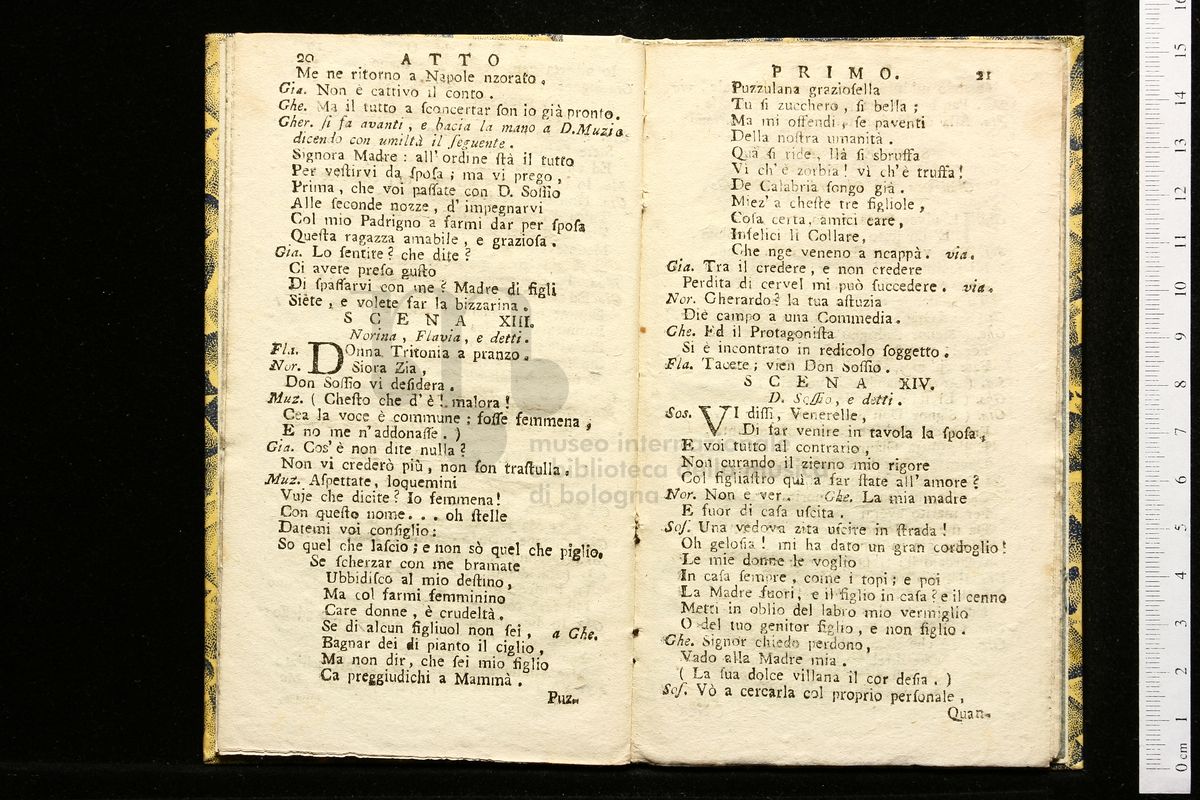 20 ATTO
Me ne ritorno a Napole nzorato.
Gia. Non è cattivo il conto.
Ghe. Ma il tutto a ſconcertar ſon io già pronto.
Gher. ſi fa avanti, e bacia la mano a D. Muzio
dicendo con umiltà il ſeguente.
Signora Madre: all'ordine ſtà il tutto
Per veſtirvi da ſpoſa; ma vi prego,
Prima, che voi paſſate con D. Soſſio
Alle ſeconde nozze, d'impegnarvi
Col mio Padrigno a farmi dar per ſpoſa
Queſta ragazza amabile, e grazioſa.
Gia. Lo ſentite? che dite?
Ci avere preſo guſto
Di ſpaſſarvi con me? Madre di figli
Siète, e volete far la bizzarina.
SCENA XIII.
Norina, Flavia, e detti.
Fla. DOnna Tritonia a pranzo.
Nor. Siora Zia,
Don Soſſio vi deſidera.
Muz. (Cheſto che d'è! malora!
Cea la voce è commune; foſſe femmena,
E no me n'addonaſſe.)
Gia. Cos'è non dite nulla?
Non vi crederò più, non ſon traſtulla.
Muz. Aſpettate, loquemini
Vuje che dicite? Io femmena!
Con queſto nome... oh ſtelle
Datemi voi conſiglio:
So quel che laſcio; e non sò quel che piglio.
Se ſcherzar con me bramate
Ubbidiſco al mio deſtino,
Ma col farmi femminino
Care donne, è crudeltà.
Se di alcun figliuol non ſei, a Ghe.
Bagnar dei di pianto il ciglio,
Ma non dir, che ſei mio figlio
Ca preggiudichi a Mammà.
Puz-
PRIMO. 21
Puzzulana grazioſella
Tu ſi zucchero, ſi bella;
Ma mi offendi, ſe paventi
Della noſtra umanità.
Quà ſi ride, llà ſi sbruffa
Vì ch'è zorbia! vì ch'è truffa!
De Calabria ſongo già.
Miez' a cheſte tre figliole,
Coſa certa, amici care,
Infelici li Collare,
Che nge veneno a ncappà. via.
Gia. Tra il credere, e non credere
Perdita di cervel mi può ſuccedere. via.
Nor. Gherardo? la tua aſtuzia
Diè campo a una Commedia.
Ghe. Ed il Protagoniſta
Si è incontrato in redicolo ſoggetto.
Fla. Tacete; vien Don Soſſio.
SCENA XIV.
D. Soſſio, e detti.
Sos. VI diſſi, Venerelle,
Di far venire in tavola la ſpoſa,
E voi tutto al contrario,
Non curando il zierno mio rigore
Col figliaſtro quì a far ſtate all'amore?
Nor. Non è ver. Ghe. La mia madre
E fuor di caſa uſcita.
Soſ. Una vedova zita uſcire in ſtrada!
Oh geloſia! mi ha dato un gran cordoglio!
Le mie donne le voglio
In caſa ſempre, come i topi; e poi
La Madre fuori, e il figlio in caſa? e il cenno
Metti in oblio del labro mio vermiglio
O del tuo genitor figlio, e non figlio.
Ghe. Signor chiedo perdono,
Vado alla Madre mia.
(La ſua dolce villana il cor deſia.)
Soſ. Vò a cercarla col proprio perſonale,
Quan-
museo internazionale
e biblioteca della musica
di bologna
0 cm 1 2 3 4 5 6 7 8 9 10 11 12 13 14 15 16